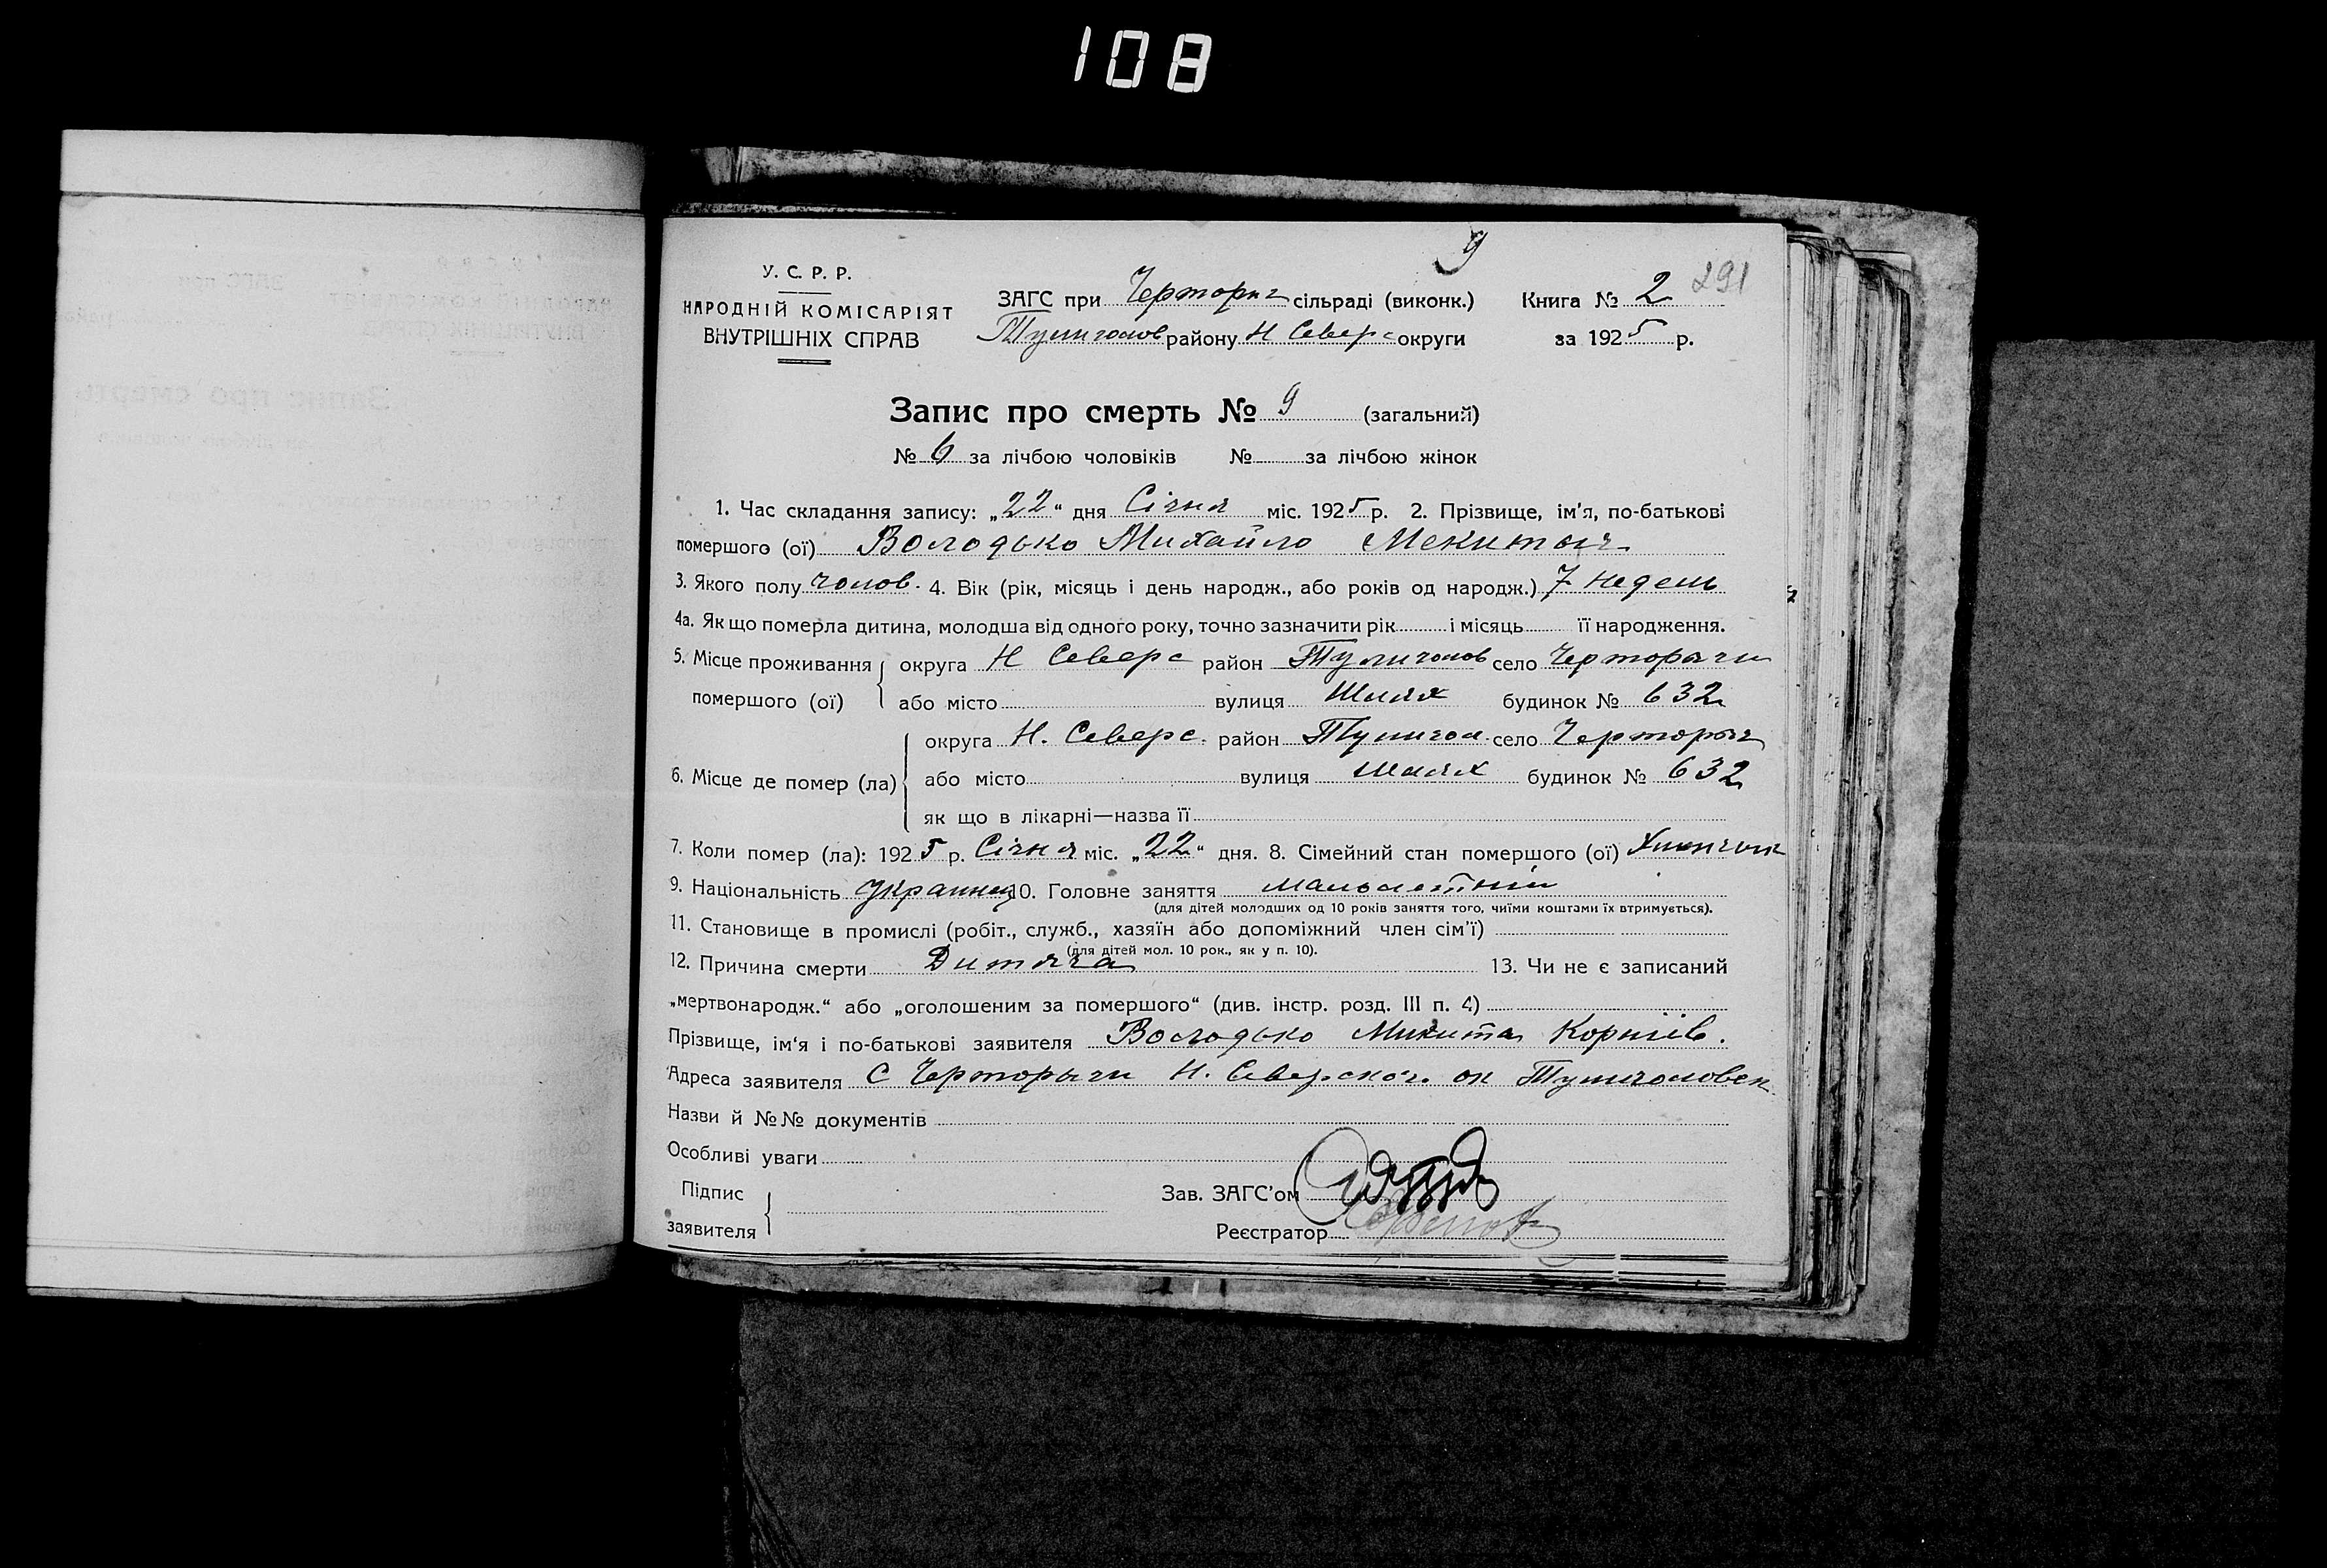 108
9
291
У. С. Р. Р.
НАРОДНІЙ КОМІСАРІЯТ
ВНУТРІШНІХ СПРАВ
ЗАГС при Черториг сільраді (виконк.) Книга № 2
Тулиголов району Н Северс округи за 1925 р.
Запис про смерть № 9 (загальний)
№ 6 за лічбою чоловіків № за лічбою жінок
1. Час складання запису: „22“ дня Січня міс. 1925 р. 2. Прізвище, ім'я, по-батькові
помершого (ої) Володько Михайло Мекитич
3. Якого полу чолов. 4. Вік (рік, місяць і день народж., або років од народж.) 7 недель
4а. Як що померла дитина, молодша від одного року, точно зазначити рік і місяць її народження.
5. Місце проживання округа Н Северс район Тулиголов село Черторыги
помершого (ої) або місто вулиця Шлях будинок № 632
округа Н. Северс. район Тулигол. село Черторыг
6. Місце де помер (ла) або місто вулиця шлях будинок № 632
як що в лікарні—назва її
7. Коли помер (ла): 1925 р. Січня міс. „22“ дня. 8. Сімейний стан помершого (ої)
9. Національність Украинец 10. Головне заняття малолетній
(для дітей молодших од 10 років заняття того, чиїми коштами їх втримується).
11. Становище в промислі (робіт., служб., хазяїн або допоміжний член сім'ї)
(для дітей мол. 10 рок., як у п. 10).
12. Причина смерти Дитяча 13. Чи не є записаний
„мертвонародж.“ або „оголошеним за помершого“ (див. інстр. розд. III п. 4)
Прізвище, ім'я і по-батькові заявителя Володько Микита Корніїв.
Адреса заявителя С Черторыги Н. Северског. ок Тулиголовск
Назви й №№ документів
Особливі уваги
Підпис
заявителя
Зав. ЗАГС'ом
Реєстратор